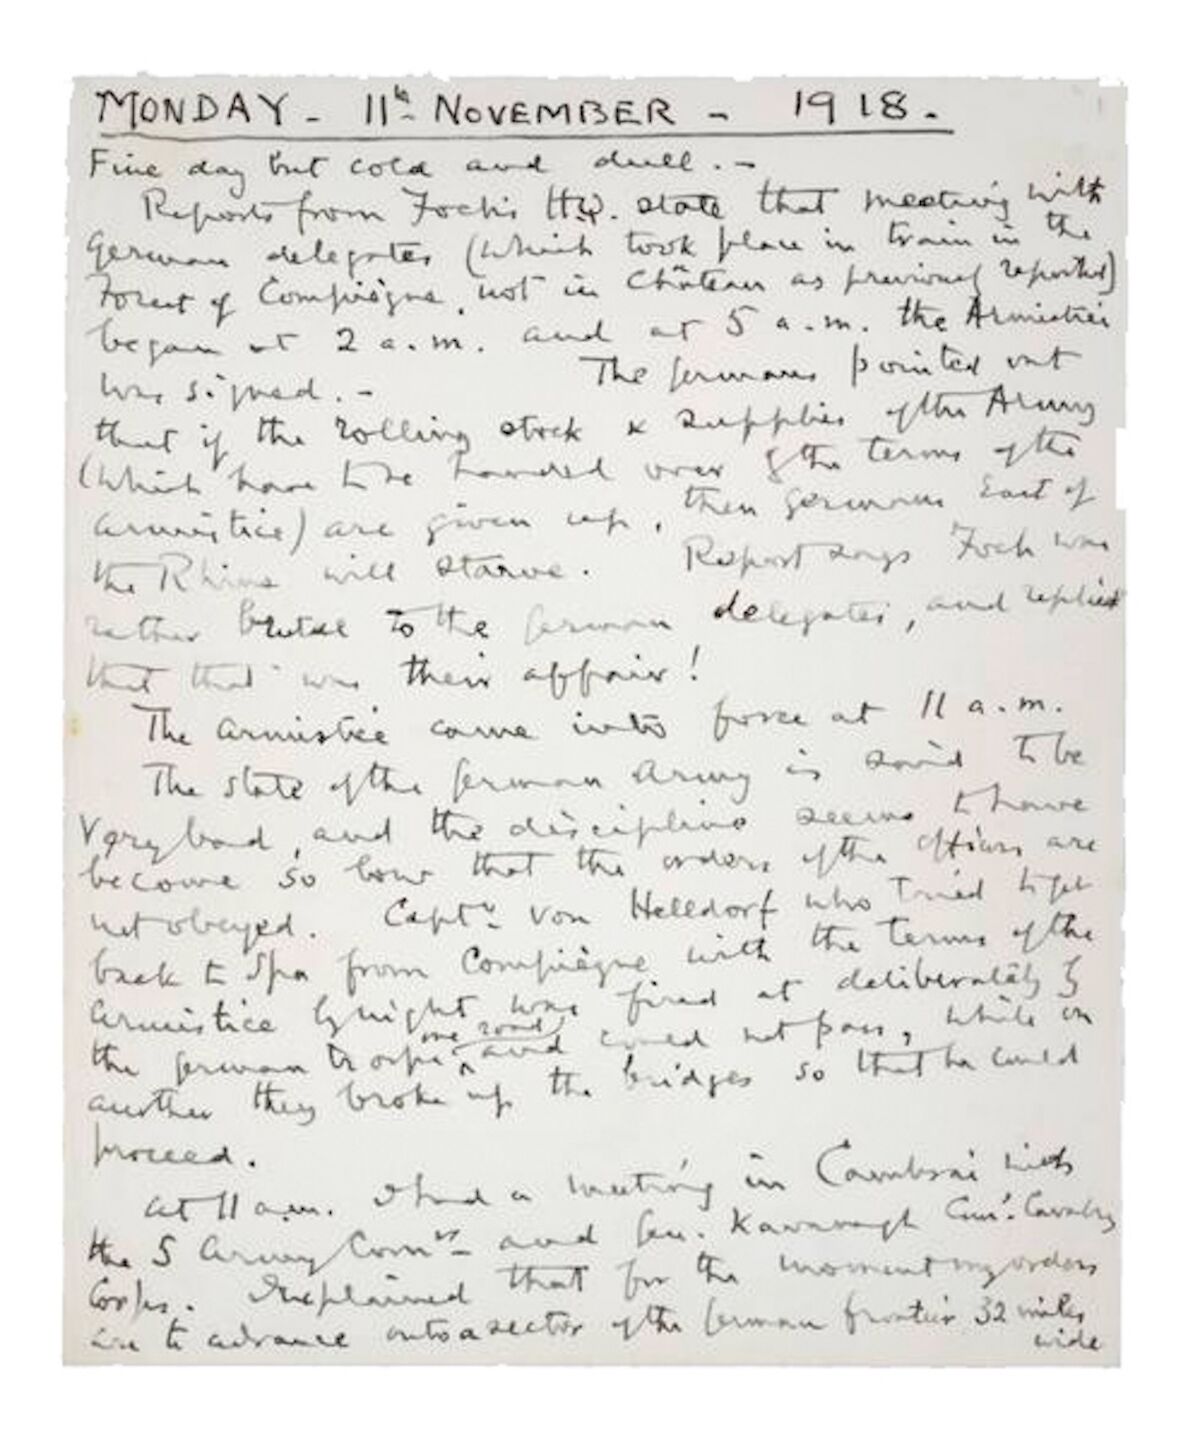 MONDAY - 11th NOVEMBER - 1918.
Fine day but cold and dull. -
Reports from Foch's HQ. state that meeting with
German delegates (which took place in train in the
Forest of Compiègne, not in Château as previously reported)
began at 2 a.m. and at 5 a.m. the Armistice
was signed. - The Germans pointed out
that if the rolling stock & supplies of the Army
(which have to be handed over by the terms of the
armistice) are given up, then Germans East of
the Rhine will starve. Report says Foch was
rather brutal to the German delegates, and replied
that that was their affair!
The armistice came into force at 11 a.m.
The state of the German Army is said to be
Very bad, and the discipline seems to have
become so low that the orders of the officers are
not obeyed. Captn. von Helldorf who tried to get
back to Spa from Compiègne with the terms of the
armistice by night was fired at deliberately by
the German troops one road, and could not pass, while on
another they broke up the bridges so that he could
proceed.
At 11 a.m. I had a meeting in Cambrai with
the 5 Army Comrs - and Gen. Kavanagh Comg. Cavalry
Corps. I explained that for the moment my orders
are to advance onto a sector of the German frontier 32 miles
wide